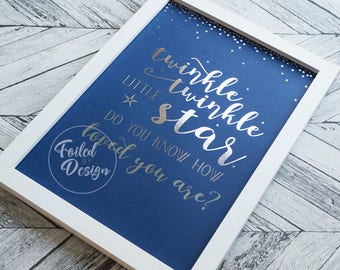 twinkle
twinkle
LITTLE
star
DO YOU KNOW HOW
loved you are?
Foiled
BY
Design